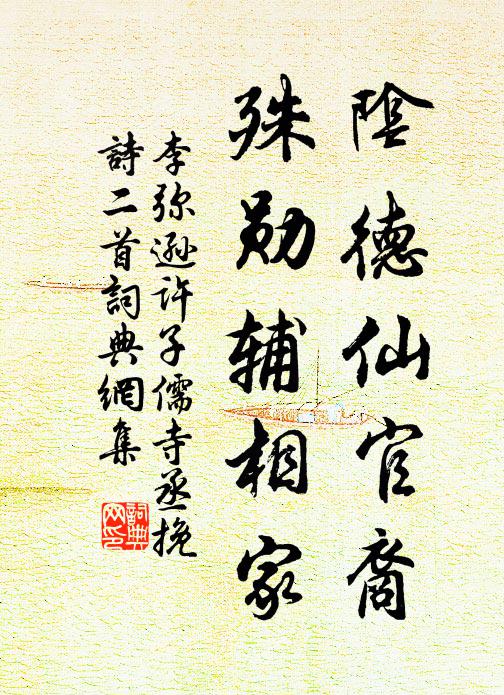 陰德仙官裔
殊勋辅相家
李弥遜许子儒寺丞挽
詩二首詞典網集
詞典
网印